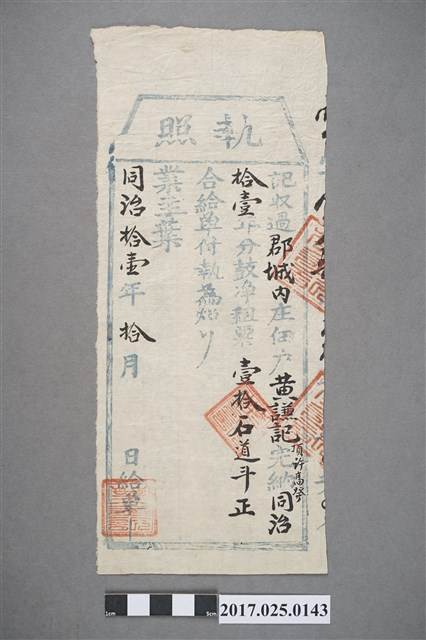 執照
記收過郡城內庄佃戶黃謙記完納同治
頂許馬
拾壹年分鼓淨租粟壹拾石道斗正
合給單付執為炤
業主葉
同治拾壹年拾月 日給單
1cm
5cm
2017.025.0143